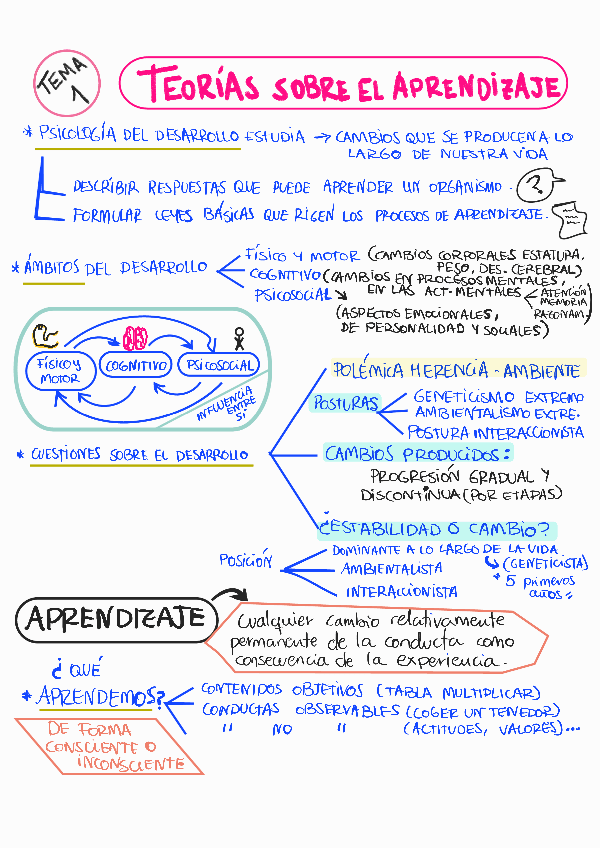 TEMA
1
TEORÍAS SOBRE EL APRENDIZAJE
* PSICOLOGÍA DEL DESARROLLO ESTUDIA → CAMBIOS QUE SE PRODUCEN A LO
LARGO DE NUESTRA VIDA
DESCRIBIR RESPUESTAS QUE PUEDE APRENDER UN ORGANISMO.
?
FORMULAR LEYES BÁSICAS QUE RIGEN LOS PROCESOS DE APRENDIZAJE.
* ÁMBITOS DEL DESARROLLO
FÍSICO Y MOTOR (CAMBIOS CORPORALES ESTATURA,
PESO, DES. CEREBRAL)
COGNITIVO (CAMBIOS EN PROCESOS MENTALES,
EN LAS ACT. MENTALES
ATENCIÓN
MEMORIA
RAZONAM.)
PSICOSOCIAL
(ASPECTOS EMOCIONALES,
DE PERSONALIDAD Y SOCIALES)
FÍSICO Y
MOTOR
COGNITIVO
PSICOSOCIAL
INFLUENCIA
ENTRE
SÍ
* CUESTIONES SOBRE EL DESARROLLO
POLÉMICA HERENCIA - AMBIENTE
POSTURAS
GENETICISMO EXTREMO
AMBIENTALISMO EXTRE.
POSTURA INTERACCIONISTA
CAMBIOS PRODUCIDOS:
PROGRESIÓN GRADUAL Y
DISCONTINUA (POR ETAPAS)
¿ESTABILIDAD O CAMBIO?
POSICIÓN
DOMINANTE A LO LARGO DE LA VIDA
(GENETICISTA)
* 5 primeros
años =
AMBIENTALISTA
INTERACCIONISTA
APRENDIZAJE
Cualquier cambio relativamente
permanente de la conducta como
consecuencia de la experiencia.
¿QUÉ
* APRENDEMOS?
CONTENIDOS OBJETIVOS (TABLA MULTIPLICAR)
CONDUCTAS OBSERVABLES (COGER UN TENEDOR)
" NO " (ACTITUDES, VALORES)...
DE FORMA
CONSCIENTE O
INCONSCIENTE